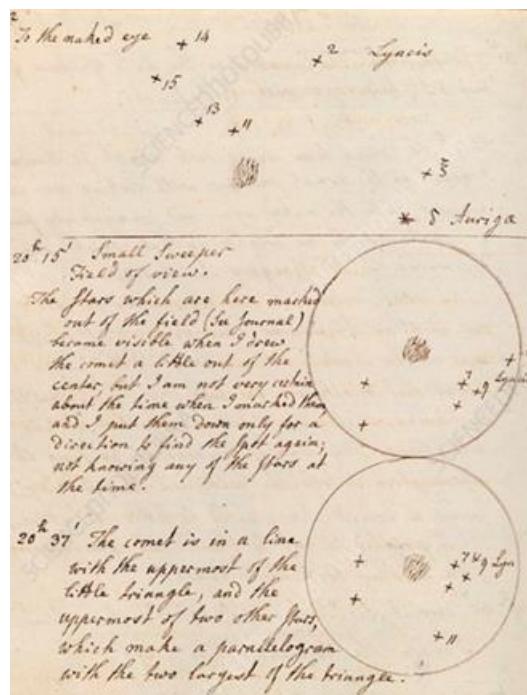 2
To the naked eye
14
2 Lyncis
15
13
11
ξ
δ Auriga
20h 15' Small Sweeper
Field of view.
The Stars which are here marked
out of the field (See Journal)
became visible when I drew
the comet a little out of the
center, but I am not very certain
about the time when I marked them,
and I put them down only for a
direction to find the spot again;
not knowing any of the Stars at
the time.
7
9 Lyncis
20h 37' The comet is in a line
with the uppermost of the
little triangle, and the
uppermost of two other Stars,
which make a parallelogram
with the two largest of the triangle.
7 & 9 Lyn
11